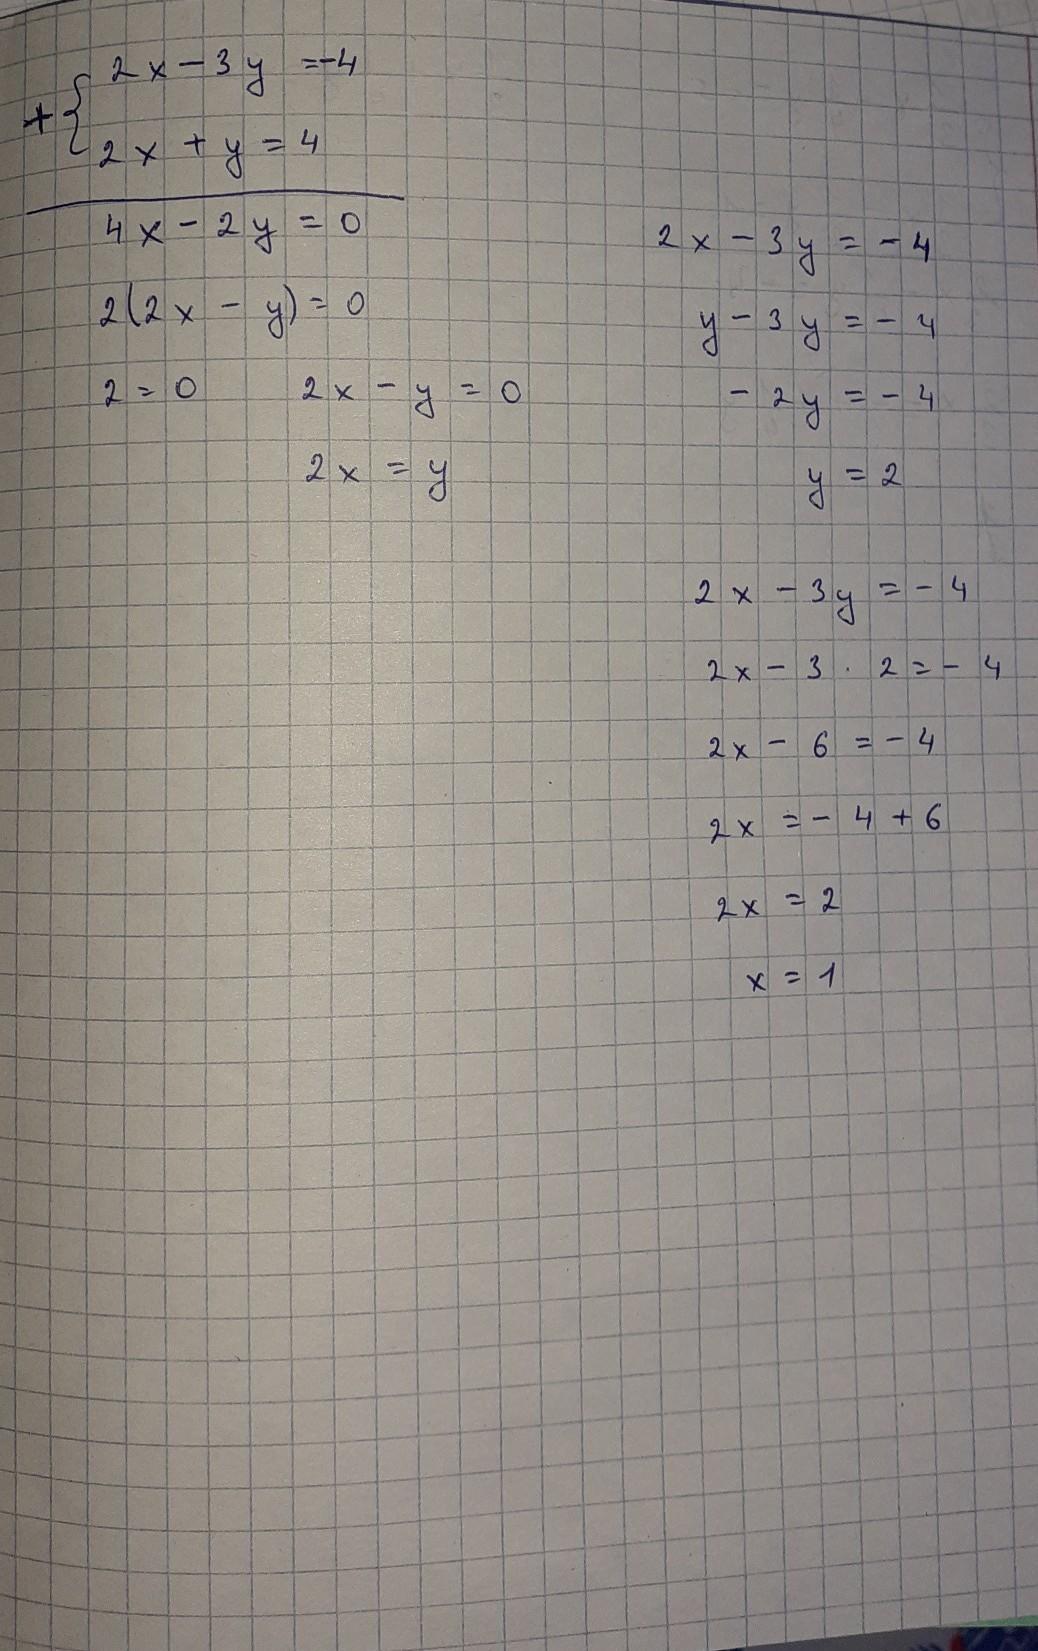 + { 2x - 3y = -4
2x + y = 4
4x - 2y = 0
2(2x - y) = 0
2 = 0 2x - y = 0
2x = y
2x - 3y = -4
y - 3y = -4
-2y = -4
y = 2
2x - 3y = -4
2x - 3 · 2 = -4
2x - 6 = -4
2x = -4 + 6
2x = 2
x = 1